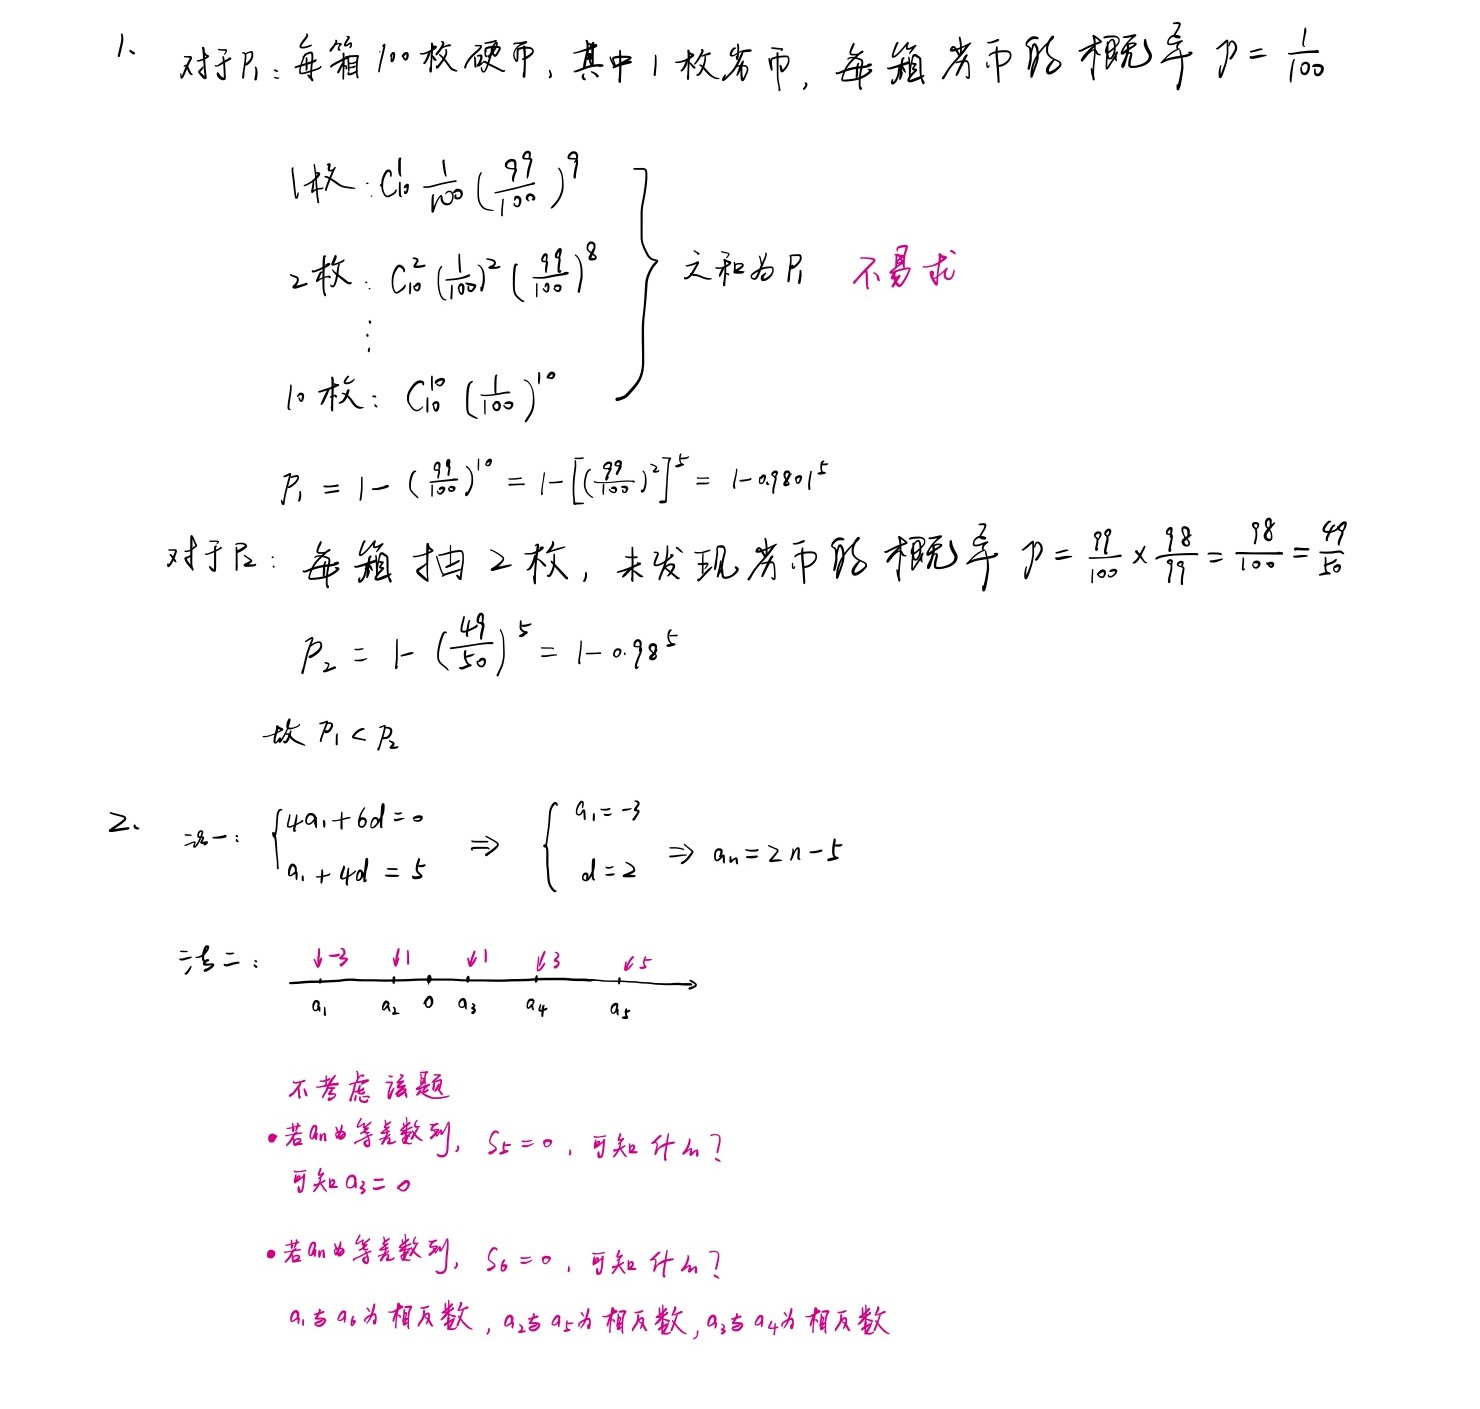 1、 对于P₁：每箱100枚硬币，其中1枚劣币，每箱劣币的概率 p = 1/100
1枚：C₁₀¹ 1/100 (99/100)⁹
2枚：C₁₀² (1/100)² (99/100)⁸ } 之和为P₁ 不易求
⋮
10枚：C₁₀¹⁰ (1/100)¹⁰
P₁ = 1 - (99/100)¹⁰ = 1 - [(99/100)²]⁵ = 1 - 0.9801⁵
对于P₂：每箱抽2枚，未发现劣币的概率 p = 99/100 × 98/99 = 98/100 = 49/50
P₂ = 1 - (49/50)⁵ = 1 - 0.98⁵
故 P₁ < P₂
2、 法一：{ 4a₁ + 6d = 0 ⇒ { a₁ = -3
a₁ + 4d = 5 d = 2 ⇒ aₙ = 2n - 5
法二：↓-3 ↓1 ↓1 ↓3 ↓5
a₁ a₂ 0 a₃ a₄ a₅
不考虑该题
•若aₙ为等差数列，S₅ = 0，可知什么？
可知a₃ = 0
•若aₙ为等差数列，S₆ = 0，可知什么？
a₁与a₆为相反数，a₂与a₅为相反数，a₃与a₄为相反数